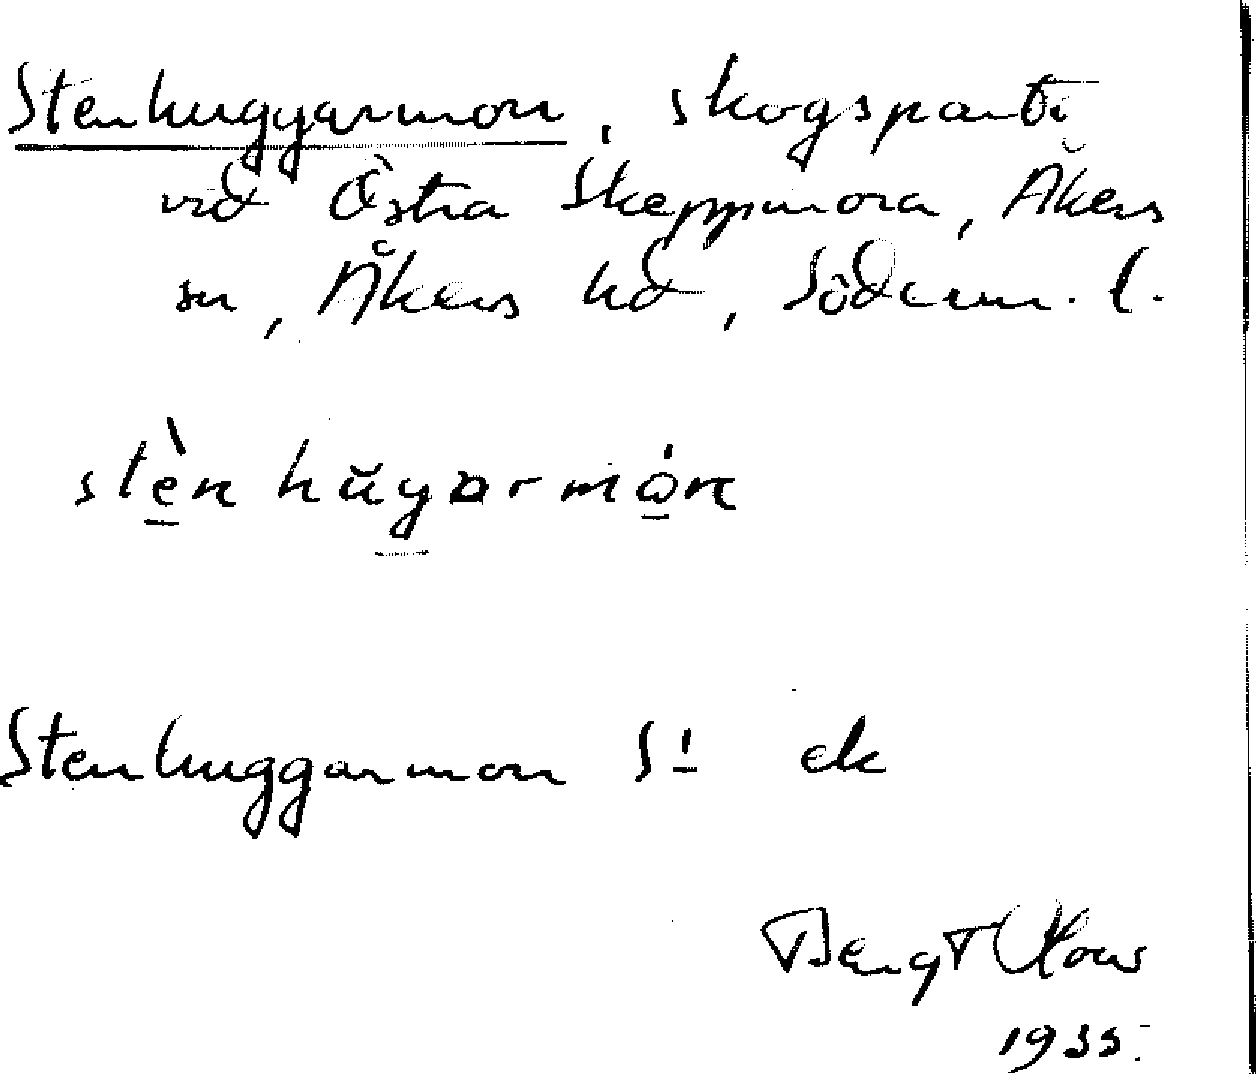 Stenhuggarmon, skogsparti
vid Östra Skeppmora, Åkers
sn, Åkers hd, Söderm. l.
stèn hŭgarmón
Stenhuggarmon S! ek
Bengt
1955.